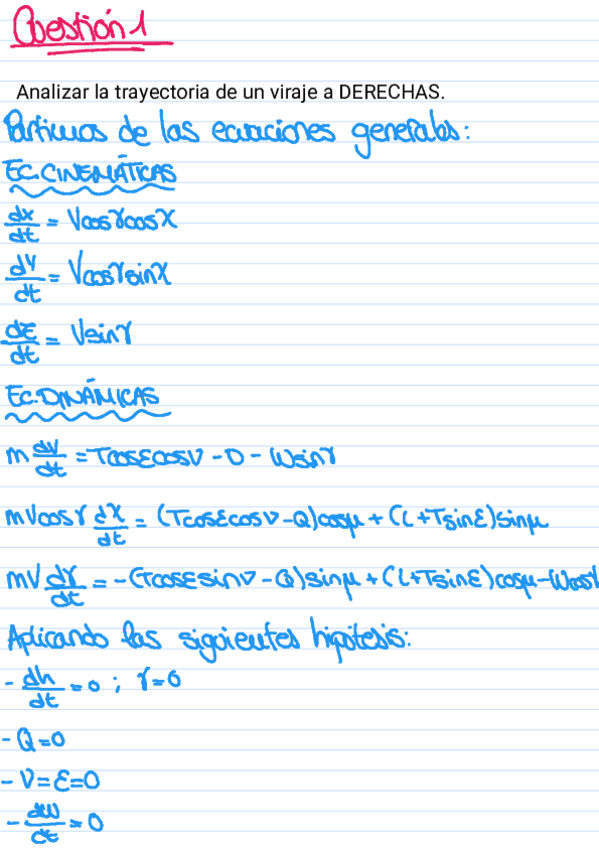 Cuestión 1
Analizar la trayectoria de un viraje a DERECHAS.
Partimos de las ecuaciones generales:
EC.CINEMÁTICAS
dx/dt = Vcosγcosχ
dy/dt = Vcosγsinχ
dz/dt = Vsinγ
EC.DINÁMICAS
m dV/dt = Tcosεcosν - D - Wsinγ
mVcosγ dχ/dt = (Tcosεcosν - Q)cosμ + (L+Tsinε)sinμ
mV dγ/dt = -(Tcosεsinν - Q)sinμ + (L+Tsinε)cosμ - Wcosγ
Aplicando las siguientes hipótesis:
- dh/dt = 0 ; γ=0
- Q=0
- ν=ε=0
- dW/dt = 0